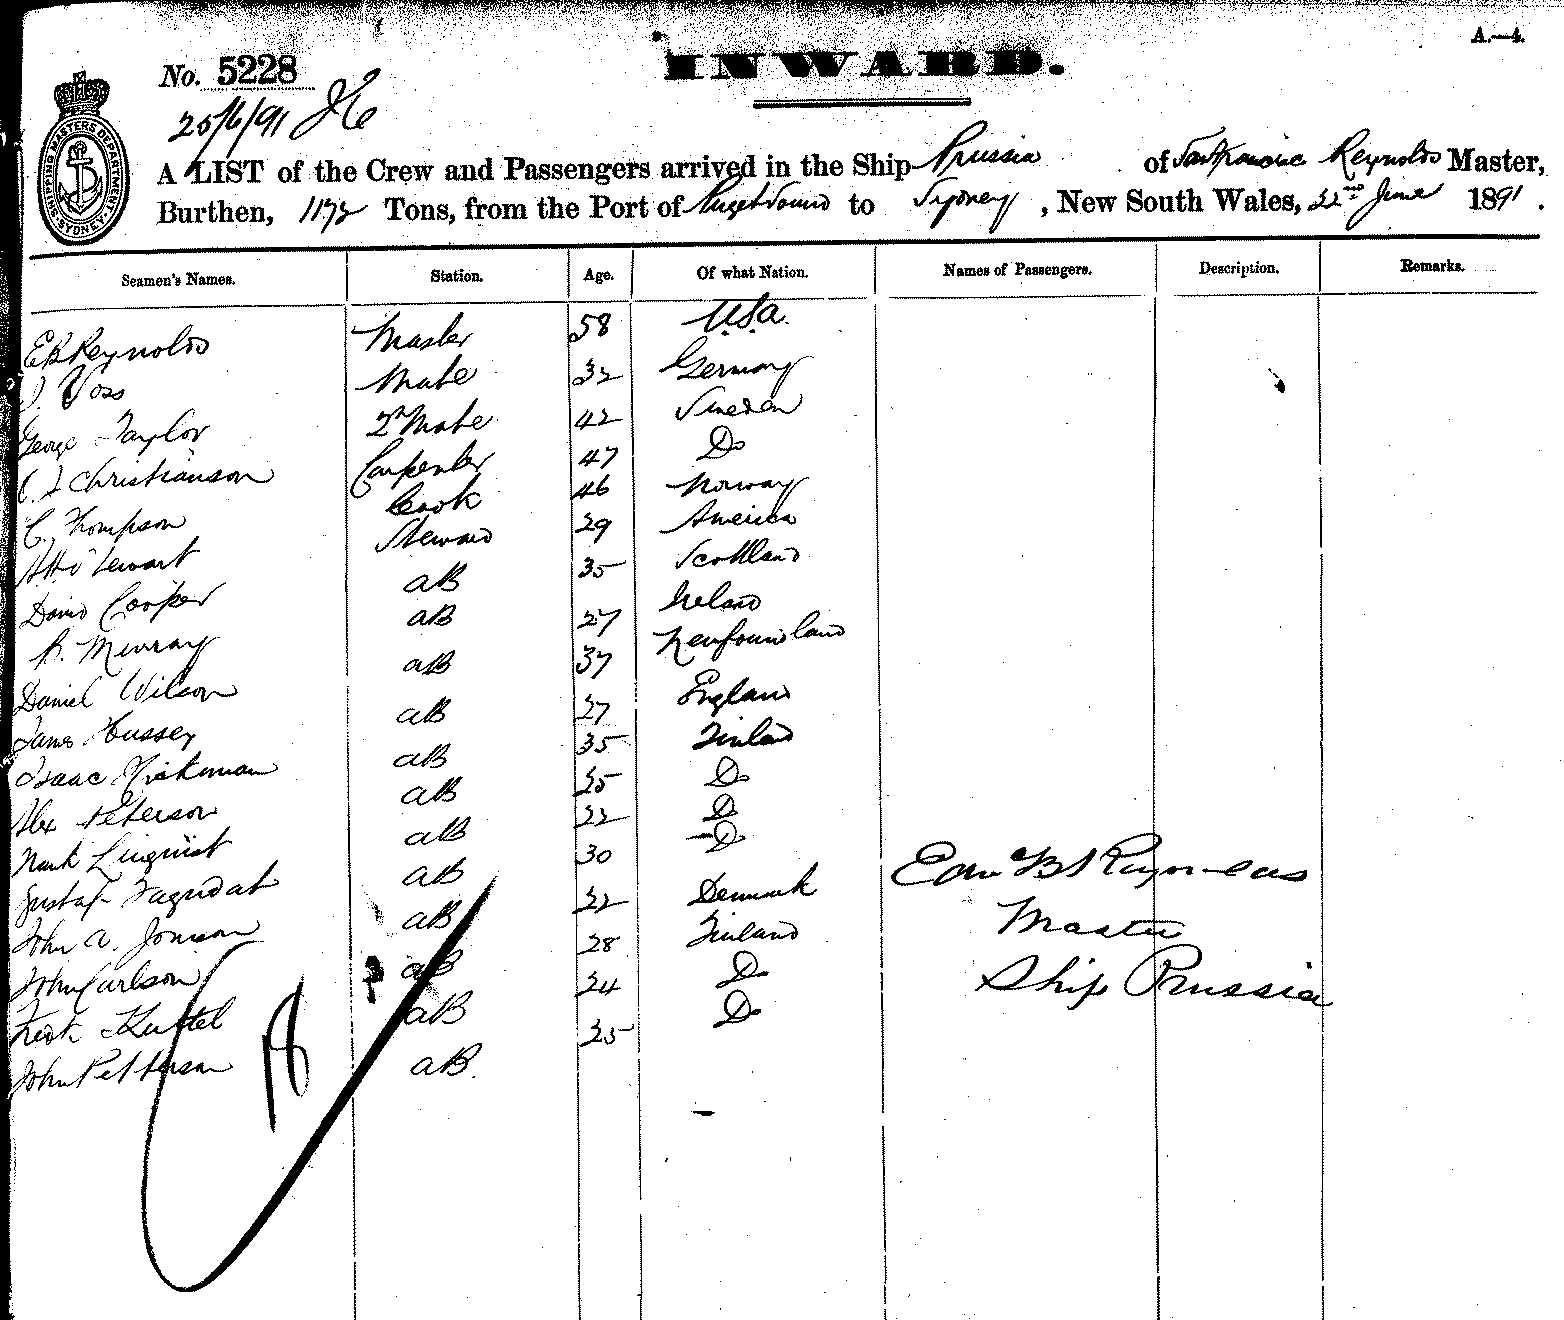 A.—4.
INWARD.
No. 5228
25/6/91
SHIPPING MASTERS DEPARTMENT
SYDNEY
A LIST of the Crew and Passengers arrived in the Ship Prussia of San Francisco Reynolds Master,
Burthen, 1172 Tons, from the Port of Puget Sound to Sydney, New South Wales, 22nd June 1891.
Seamen's Names. Station. Age. Of what Nation. Names of Passengers. Description. Remarks.
E B Reynolds Master 58 U.S.a.
J. Voss Mate 32 Germany
George Taylor 2n Mate 42 Sweden
Christianson Carpenter 47 Do
C. Thompson Cook 46 Norway
Stewart Steward 29 America
David Cooper aB 35 Scottland
Murray aB 27 Ireland
Daniel Wilson aB 37 Newfounland
James Hussey aB 27 England
Isaac aB 35 Finland
Alex Peterson aB 25 Do
Linquist aB 22 Do
Gustaf aB 30 Do
John a. Jonson aB 22 Denmark
John Carlson aB 28 Finland
aB 24 Do
John Petterson aB 25 Do
18
Edw B Reynolds
Master
Ship Prussia